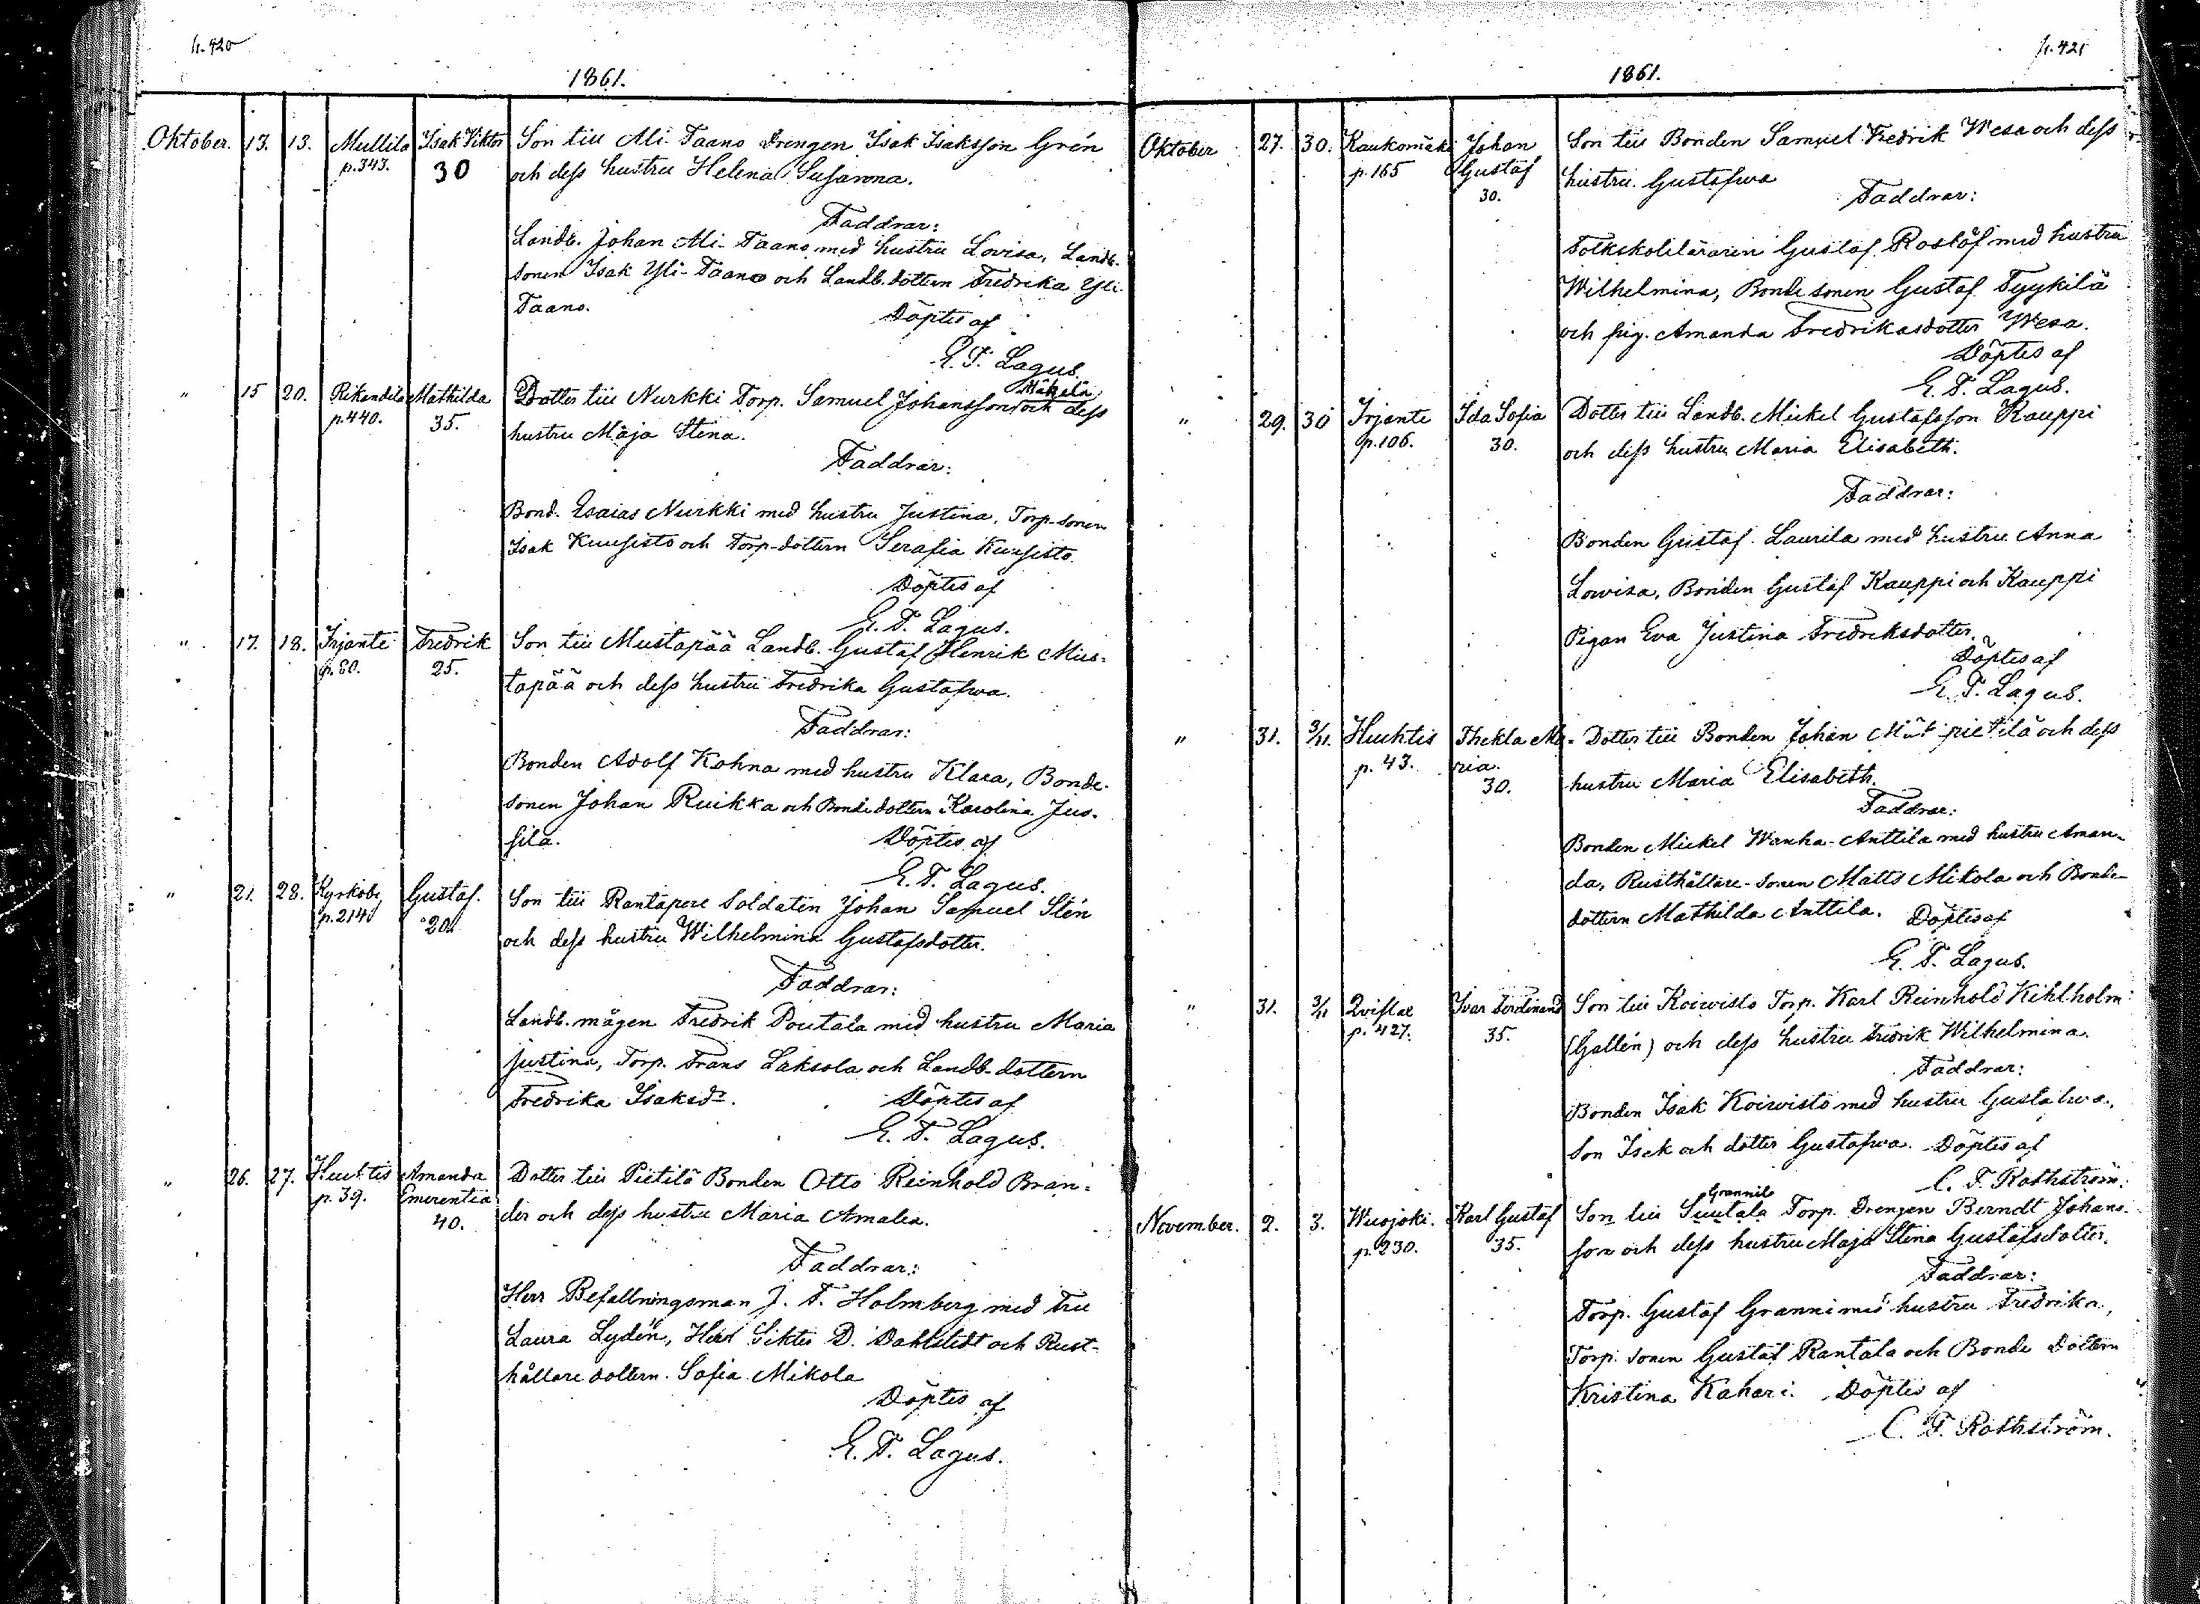 p. 420
1861.
Oktober. 13. 13. Mullila Isak Viktor Son till Ali-Taano Drengen Isak Isaksson Grén
p. 343. 30 och dess hustru Helena Susanna.
Faddrar:
Landb. Johan Ali-Taano med hustru Lovisa, Landb.
sonen Isak Yli-Taano och Landb. dottern Fredrika Yli-
Taano.
Döptes af
E. F. Lagus.
" 15 20. Rikandila Mathilda Dotter till Nurkki Torp. Samuel Johansson Mäkelä och dess
p. 440. 35. hustru Maja Stina.
Faddrar:
Bond. Esaias Nurkki med hustru Justina, Torp-sonen
Isak Kuusisto och Torp-dottern Serafia Kuusisto.
Döptes af
E. F. Lagus.
" 17. 18. Irjante Fredrik Son till Mustapää Landb. Gustaf Henrik Mus-
p. 80. 25. tapää och dess hustru Fredrika Gustafwa.
Faddrar:
Bonden Adolf Kohna med hustru Klara, Bonde-
sonen Johan Ruikka och Bondedottern Karolina Jus-
sila.
Döptes af
E. F. Lagus.
" 21. 28. Kyrkoby Gustaf. Son till Rantapere Soldaten Johan Samuel Stén
p. 214 20. och dess hustru Wilhelmina Gustafsdotter.
Faddrar:
Landb. mågen Fredrik Poutala med hustru Maria
Justina, Torp. Frans Laksola och Landb-dottern
Fredrika Isaksdr.
Döptes af
E. F. Lagus.
" 26. 27. Huhtis Amanda Dotter till Pietilä Bonden Otto Reinhold Bran-
p. 39. Emerentia der och dess hustru Maria Amalia.
40.
Faddrar:
Herr Befallningsman J. F. Holmberg med Fru
Laura Lydén, Herr Siktes D. Dahlstedt och Rust-
hållare dottern Sofia Mikola
Döptes af
E. F. Lagus.
p. 421
1861.
Oktober 27. 30. Kaukomäki Johan Son till Bonden Samuel Fredrik Wesa och dess
p. 165 Gustaf hustru Gustafwa
30.
Faddrar:
Folkskoleläraren Gustaf Roslöf med hustru
Wilhelmina, Bondesonen Gustaf Tyykilä
och pig. Amanda Fredrikasdotter Wesa.
Döptes af
E. F. Lagus.
" 29. 30 Irjante Ida Sofia Dotter till Landb. Mickel Gustafsson Kauppi
p. 106. 30. och dess hustru Maria Elisabeth.
Faddrar:
Bonden Gustaf Laurila med hustru Anna
Lovisa, Bonden Gustaf Kauppi och Kauppi
Pigan Eva Justina Fredriksdotter
Döptes af
E. F. Lagus.
" 31. 3/11. Huhtis Thekla Ma- Dotter till Bonden Johan pietilä och dess
p. 43. ria. hustru Maria Elisabeth.
30.
Faddrar:
Bonden Mickel Wanha-Anttila med hustru Aman-
da, Rusthållare-sonen Matts Mikola och Bonde-
dottern Mathilda Anttila. Döptes af
E. F. Lagus.
" 31. 3/11 Qviflax Ivar Ferdinand Son till Koivisto Torp. Karl Reinhold Kihlholm
p. 427. 35. (Gallén) och dess hustru Fredrik Wilhelmina.
Faddrar:
Bonden Isak Koivisto med hustru Gustafwa,
Son Isak och dotter Gustafwa. Döptes af
C. F. Rothström.
November. 2. 3. Wuojoki. Karl Gustaf Son till Suutala Grannil Torp. Drengen Berndt Johans-
p. 230. 35. son och dess hustru Maja Stina Gustafsdotter.
Faddrar:
Torp. Gustaf Granni med hustru Fredrika,
Torp. sonen Gustaf Rantala och Bonde dottern
Kristina Kahari. Döptes af
C. F. Rothström.